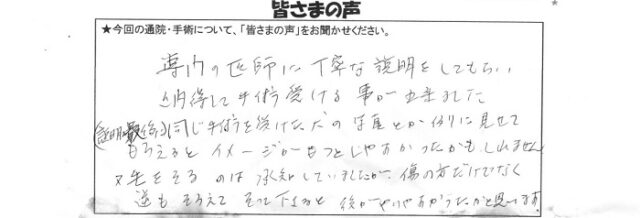 皆さまの声
★今回の通院・手術について、「皆さまの声」をお聞かせください。
専門の医師に丁寧な説明をしてもらい
納得して手術受ける事が出来ました
(説明の最後に)同じ手術を受けた犬の写真とか例に見せて
もらえると イメージがもっとしやすかったかもしれません
又毛をそるのは承知していましたが、傷の方だけでなく
逆もそろえてそって下さると 後がやりやすかったかと思います。